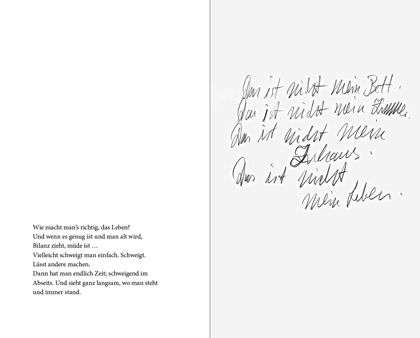 Wie macht man's richtig, das Leben?
Und wenn es genug ist und man alt wird,
Bilanz zieht, müde ist …
Vielleicht schweigt man einfach. Schweigt.
Lässt andere machen.
Dann hat man endlich Zeit; schweigend im
Abseits. Und sieht ganz langsam, wo man steht
und immer stand.
Das ist nicht mein Bett.
Das ist nicht mein Zimmer.
Das ist nicht mein
Zuhaus.
Das ist nicht
mein Leben.